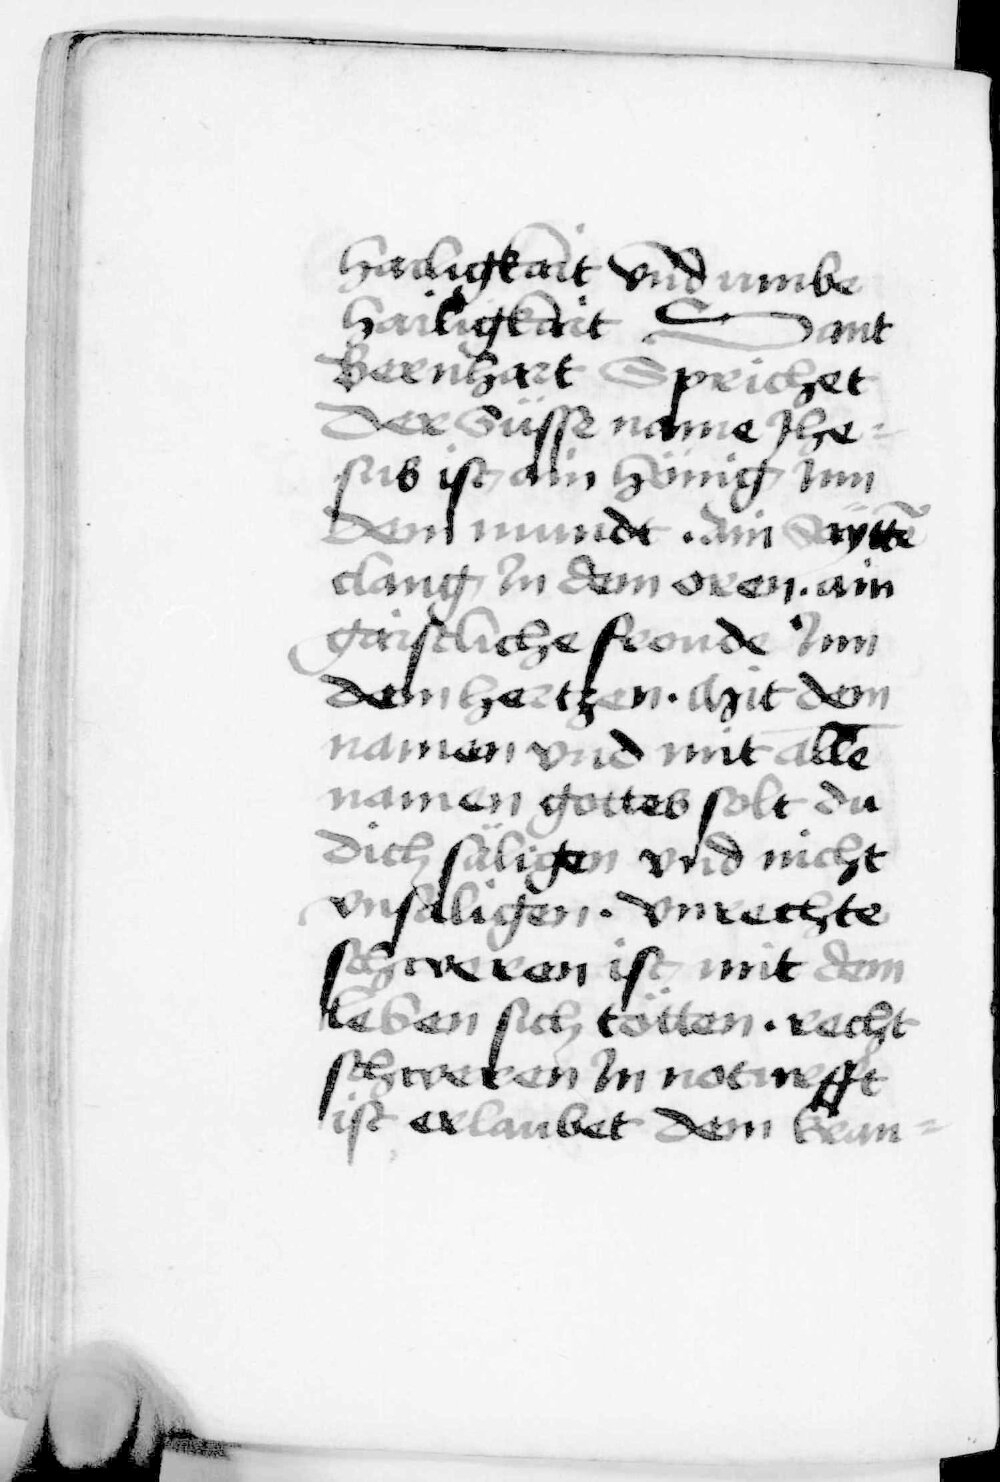 hailigkait vnd vmbe
hailigkait Sant
Bernhart Sprichet
Der Süsse name Jhe=
sus ist ain hönig Inn
dem mundt . ain Saÿttē
clang In dem oren . ain
gaistliche freoude Inn
dem hertzen . Mit dem
namen vnd mit allē
namen gottes solt du
dich säligen vnd nicht
vnsäligen . vnrechte
schweren ist mit dem
leben sich tötten . recht
schweren In noturfft
ist erlaubet dem kran=